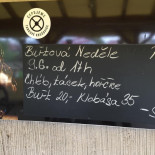 Buřtová Neděle
9.6. od 17h
Chléb, tácek, hořčice
Buřt 20,- Klobása 35